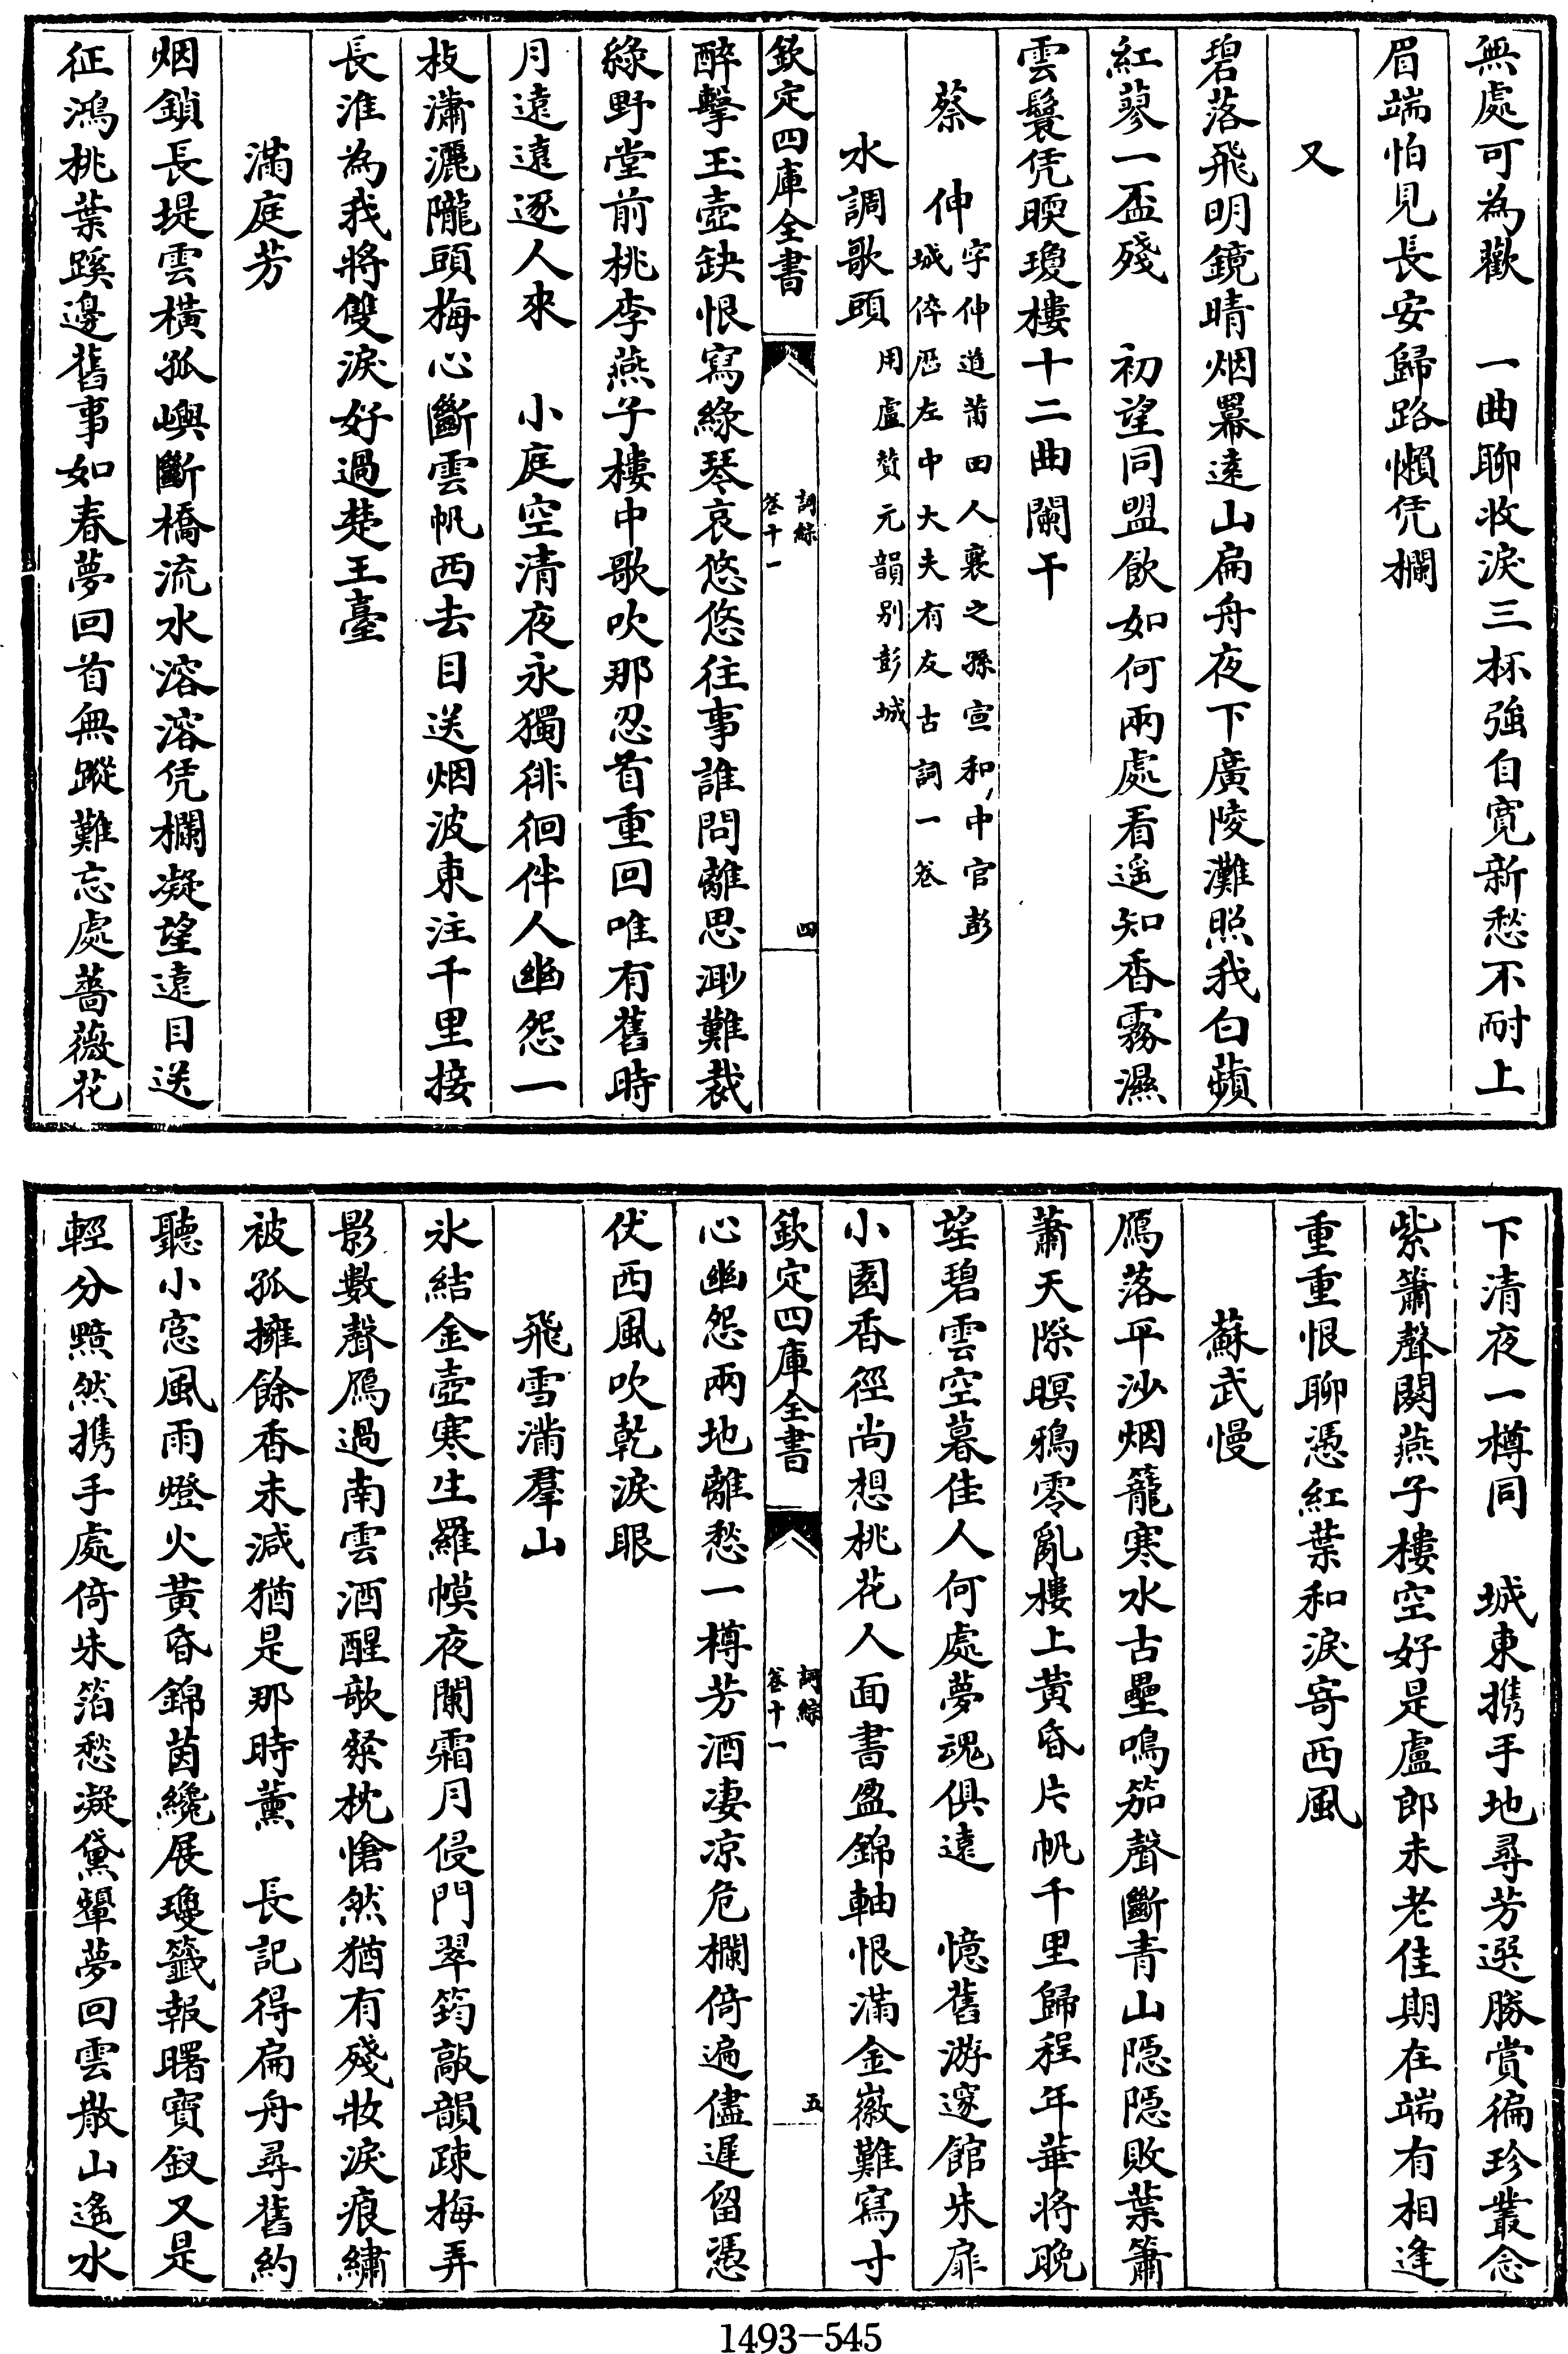 無處可為歡　一曲聊收淚三杯強自寬新愁不耐上
眉端怕見長安歸路懶凭欄
又
碧落飛明鏡晴烟羃遠山扁舟夜下廣陵灘照我白蘋
紅蓼一盃殘　初望同盟飲如何兩處看遥知香霧濕
雲鬟凭暝瓊樓十二曲闌干
蔡伸字伸道莆田人襄之孫宣和中官彭
城倅歴左中大夫有友古詞一卷
水調歌頭用盧贊元韻别彭城
欽定四庫全書　詞綜　卷十一　四
醉擊玉壺缺恨寫綠琴哀悠悠往事誰問離思渺難裁
綠野堂前桃李燕子樓中歌吹那忍首重回唯有舊時
月遠遠逐人來　小庭空清夜永獨徘徊伴人幽怨一
枝瀟灑隴頭梅心斷雲帆西去目送烟波東注千里接
長淮為我將雙淚好過楚王臺
滿庭芳
烟鎖長堤雲橫孤嶼斷橋流水溶溶凭欄凝望遠目送
征鴻桃葉蹊邊舊事如春夢回首無蹤難忘處薔薇花
下清夜一樽同　城東携手地尋芳選勝賞徧珍叢念
紫簫聲闋燕子樓空好是盧郎未老佳期在端有相逢
重重恨聊憑紅葉和淚寄西風
蘇武慢
鴈落平沙烟籠寒水古壘鳴笳聲斷青山隱隱敗葉簫
蕭天際暝鴉零亂樓上黄昏片帆千里歸程年華將晚
望碧雲空暮佳人何處夢魂俱遠　憶舊游邃館朱扉
小園香徑尚想桃花人面書盈錦軸恨滿金徽難寫寸
欽定四庫全書　詞綜　卷十一　五
心幽怨兩地離愁一樽芳酒凄凉危欄倚遍儘遲留憑
伏西風吹乾淚眼
飛雪滿羣山
氷結金壺寒生羅幙夜闌霜月侵門翠筠敲韻疎梅弄
影數聲鴈過南雲酒醒欹粲枕愴然猶有殘妝淚痕繡
被孤擁餘香未減猶是那時薰　長記得扁舟尋舊約
聽小窓風雨燈火黃昏錦茵纔展瓊籤報曙寶釵又是
輕分黯然携手處倚朱箔愁凝黛顰夢回雲散山遙水
1493-545